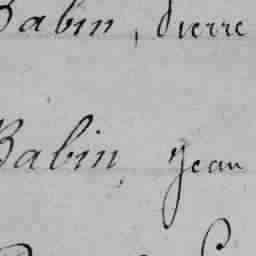 Babin, Pierre
Babin, Jean